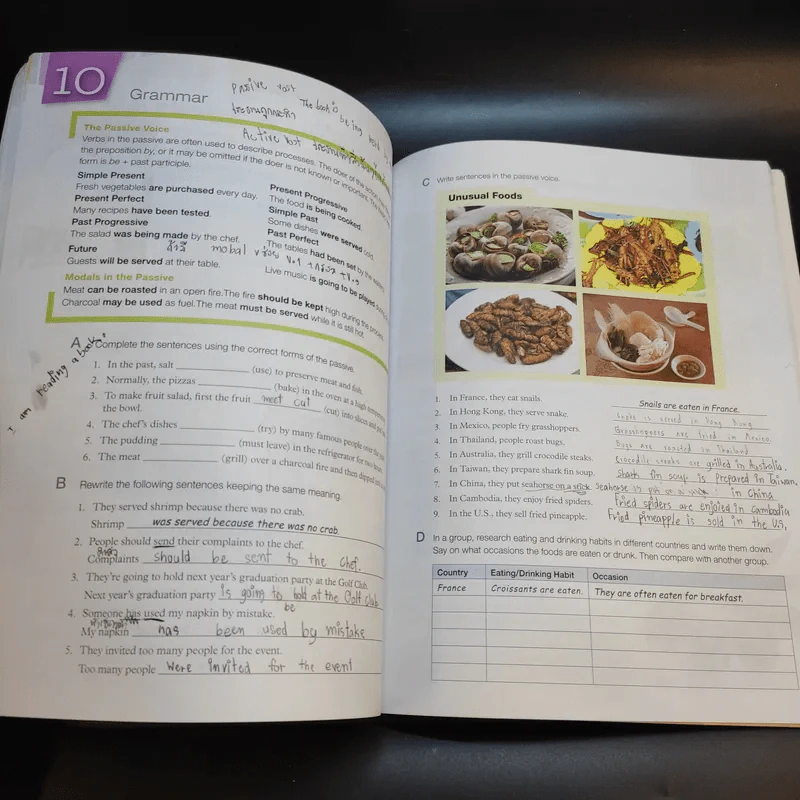 10
Grammar
Passive vost The book is being read
Active bot
The Passive Voice
Verbs in the passive are often used to describe processes. The doer of the action
the preposition by, or it may be omitted if the doer is not known or important. The
form is be + past participle.
Simple Present
Fresh vegetables are purchased every day.
Present Perfect
Many recipes have been tested.
Past Progressive
The salad was being made by the chef.
Future
Guests will be served at their table.
Present Progressive
The food is being cooked.
Simple Past
Some dishes were served cold.
Past Perfect
The tables had been set by the
Live music is going to be played
mobal
Modals in the Passive
Meat can be roasted in an open fire. The fire should be kept high during the process.
Charcoal may be used as fuel. The meat must be served while it is still hot.
I am reading a book
A Complete the sentences using the correct forms of the passive.
1. In the past, salt ____ (use) to preserve meat and fish.
2. Normally, the pizzas ____ (bake) in the oven at a high
3. To make fruit salad, first the fruit meet cut (cut) into slices and
the bowl.
4. The chef's dishes ____ (try) by many famous people over the
5. The pudding ____ (must leave) in the refrigerator for two hours
6. The meat ____ (grill) over a charcoal fire and then dipped
B Rewrite the following sentences keeping the same meaning.
1. They served shrimp because there was no crab.
Shrimp was served because there was no crab.
2. People should send their complaints to the chef.
Complaints should be sent to the chef.
3. They're going to hold next year's graduation party at the Golf Club.
Next year's graduation party is going to hold at the Golf club
be
4. Someone has used my napkin by mistake.
My napkin has been used by mistake
5. They invited too many people for the event.
Too many people were invited for the event
C Write sentences in the passive voice.
Unusual Foods
1. In France, they eat snails. Snails are eaten in France.
2. In Hong Kong, they serve snake. Snake is served in Hong Kong
3. In Mexico, people fry grasshoppers. Grasshoppers are fried in Mexico.
4. In Thailand, people roast bugs. Bugs are roasted in Thailand
5. In Australia, they grill crocodile steaks. Crocodile steaks are grilled in Australia.
6. In Taiwan, they prepare shark fin soup. Shark fin soup is prepared in Taiwan.
7. In China, they put seahorse on a stick. Seahorse is put on a in China
8. In Cambodia, they enjoy fried spiders. Fried spiders are enjoied in Cambodia
9. In the U.S., they sell fried pineapple. Fried pineapple is sold in the U.S,
D In a group, research eating and drinking habits in different countries and write them down.
Say on what occasions the foods are eaten or drunk. Then compare with another group.
Country Eating/Drinking Habit Occasion
France Croissants are eaten. They are often eaten for breakfast.